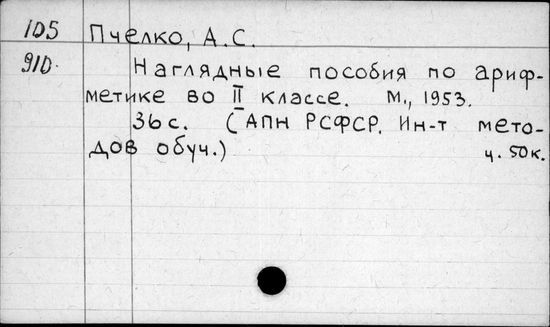 105 Пчелко, А.С.
910. Наглядные пособия по ариф-
метике во II классе. М., 1953.
36 с. (АПН РСФСР. Ин-т мето-
дов обуч.) ц. 50к.